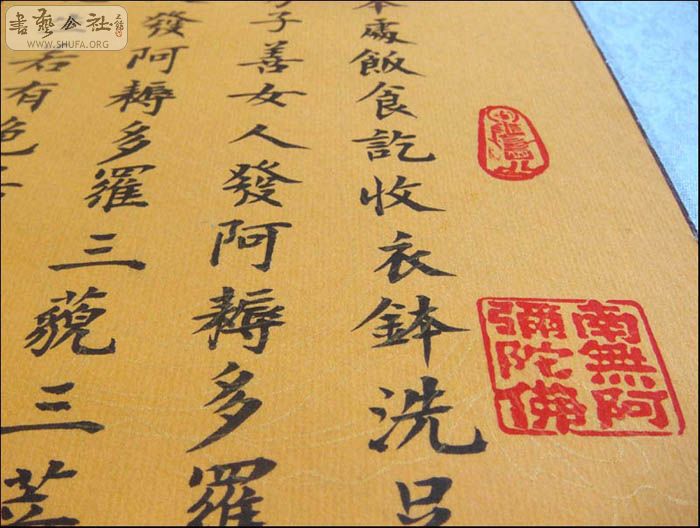 南無阿
彌陀佛
本處飯食訖收衣鉢洗足
子善女人發阿耨多羅
發阿耨多羅三藐三菩
若有色
書藝公社
WWW.SHUFA.ORG